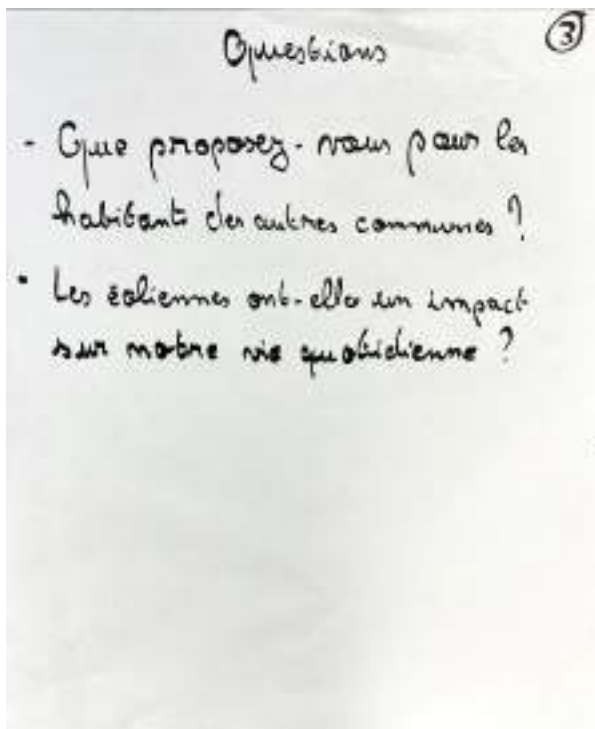 Questions
3
- Que proposez-vous pour les
habitants des autres communes ?
- Les éoliennes ont-elles un impact
sur notre vie quotidienne ?